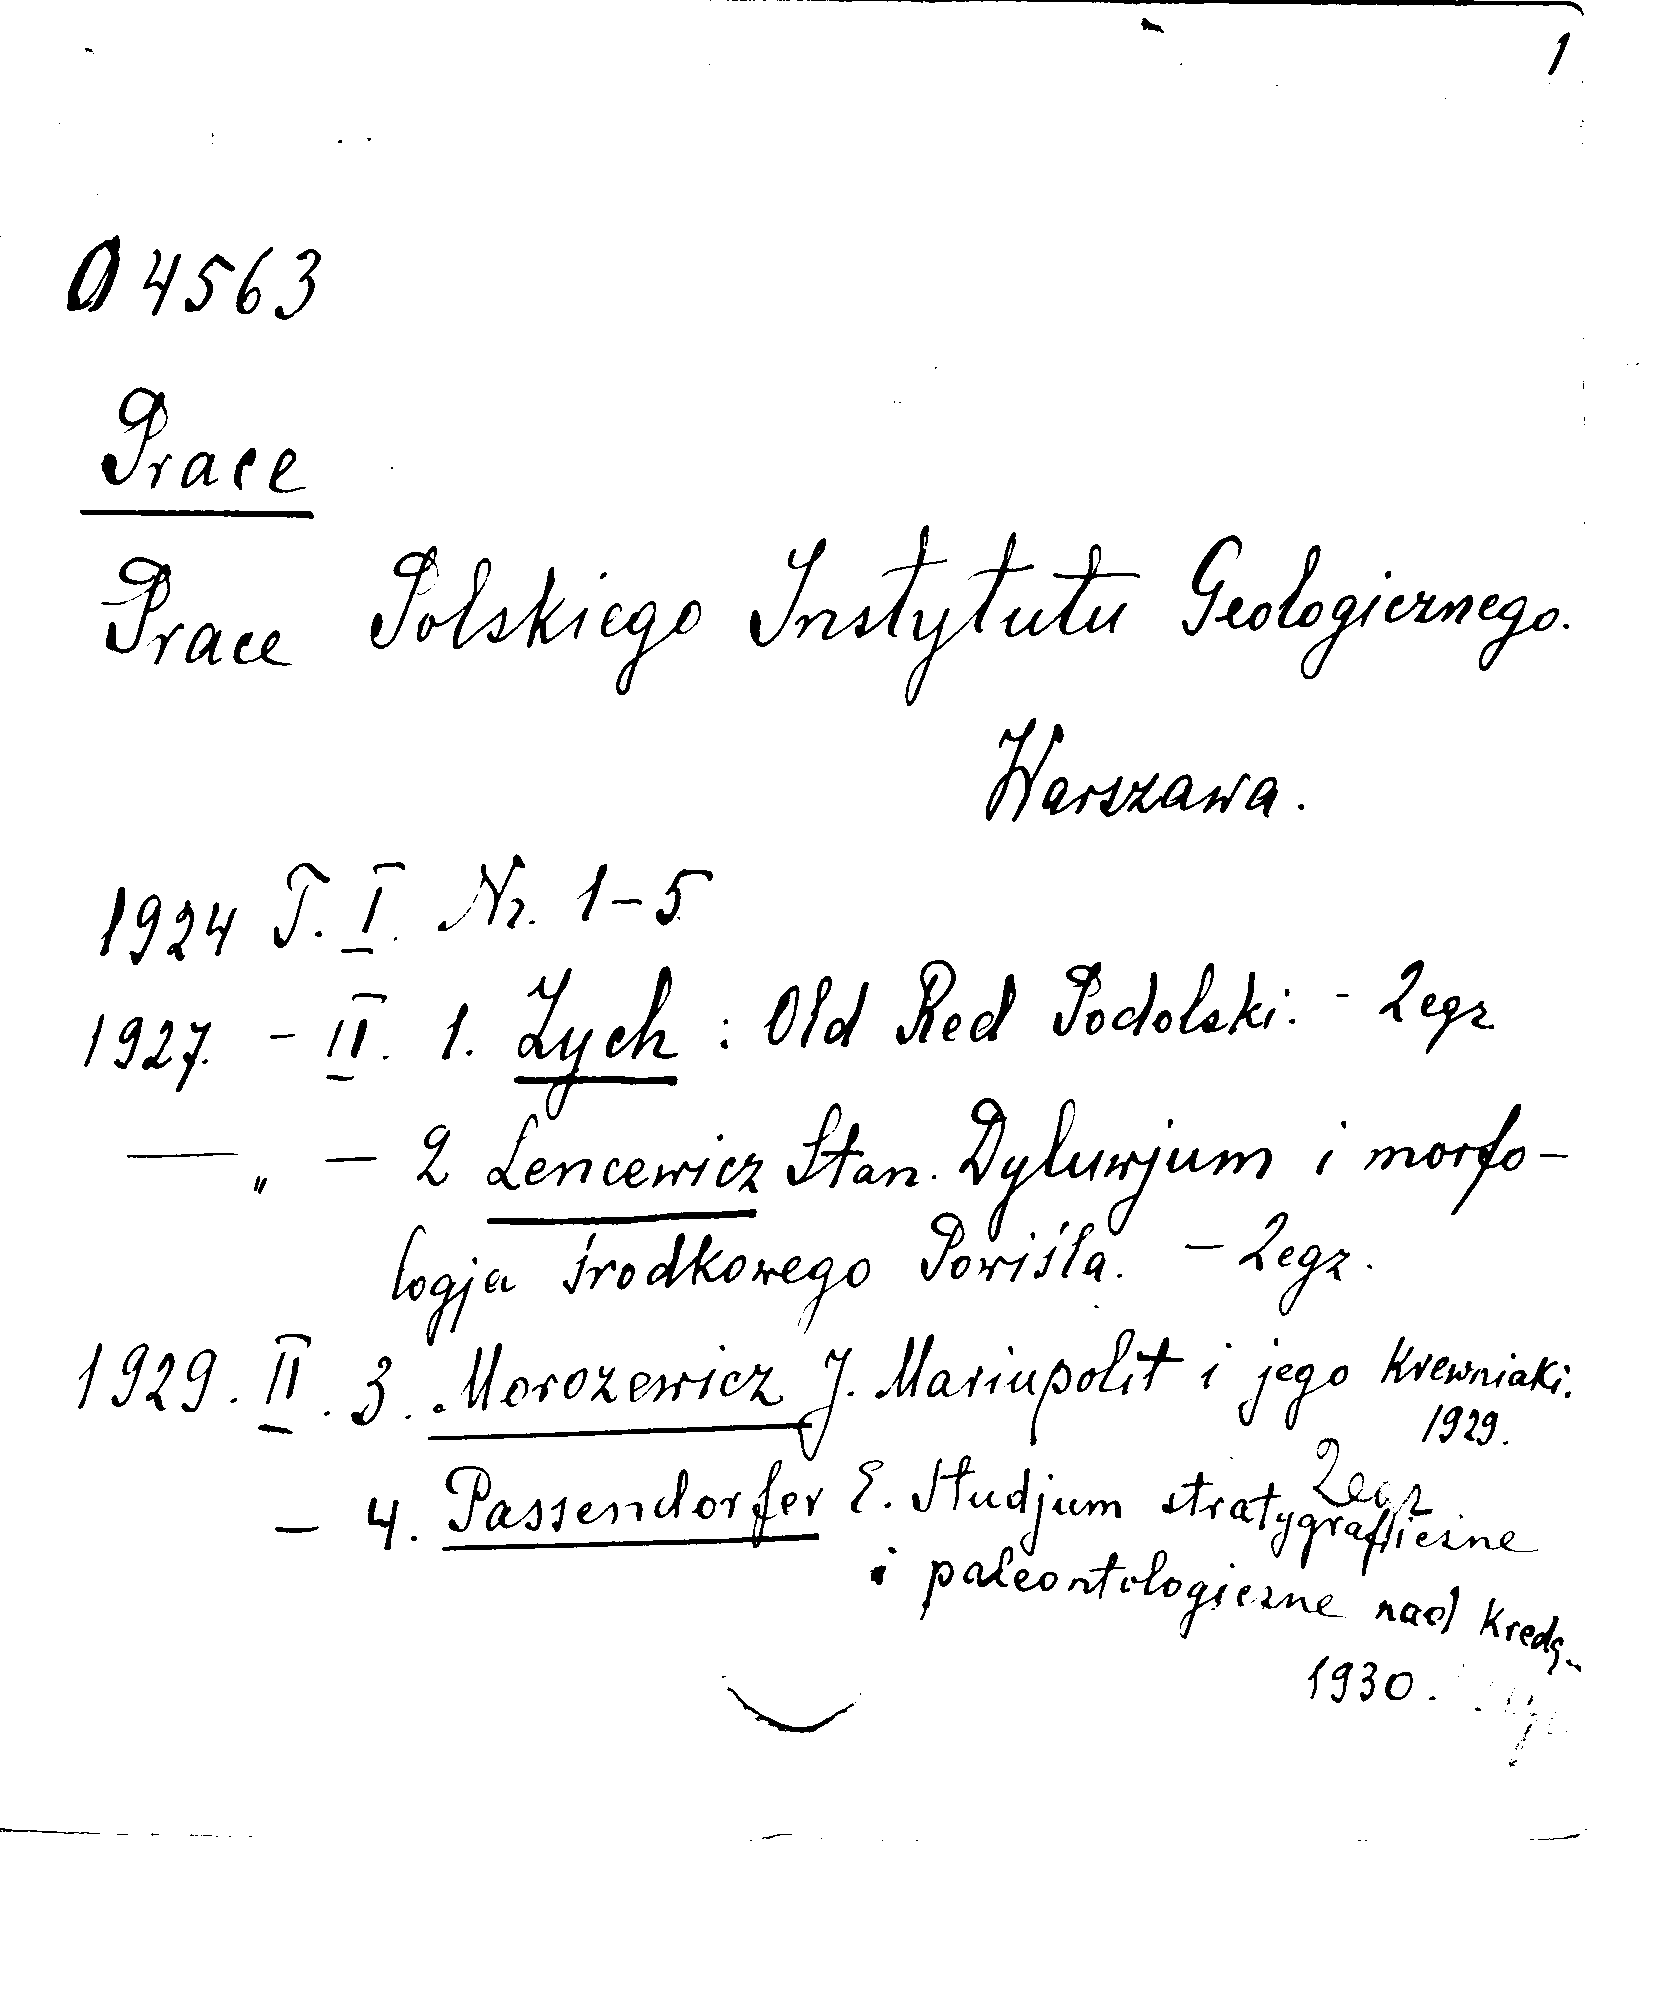 1
04563
Prace
Prace Polskiego Instytutu Geologicznego.
Warszawa.
1924 T. I. Nr. 1-5
1927. - II. 1. Zych: Old Red Podolski. - 2egz
— " — 2 Lencewicz Stan. Dyluwjum i morfo-
logja środkowego Powiśla. - 2egz.
1929. II. 3. Morozewicz J. Mariupolit i jego krewniaki.
1929.
2egz
— 4. Passendorfer E. Studjum stratygraficzne
i paleontologiczne nad kredą
1930.